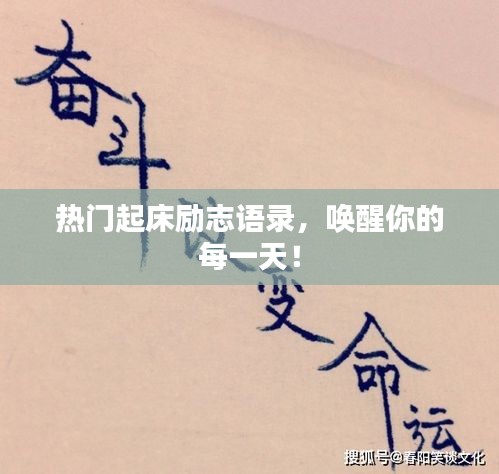 奋斗改变命运
热门起床励志语录，唤醒你的
每一天！
搜狐号@春阳笑谈文化